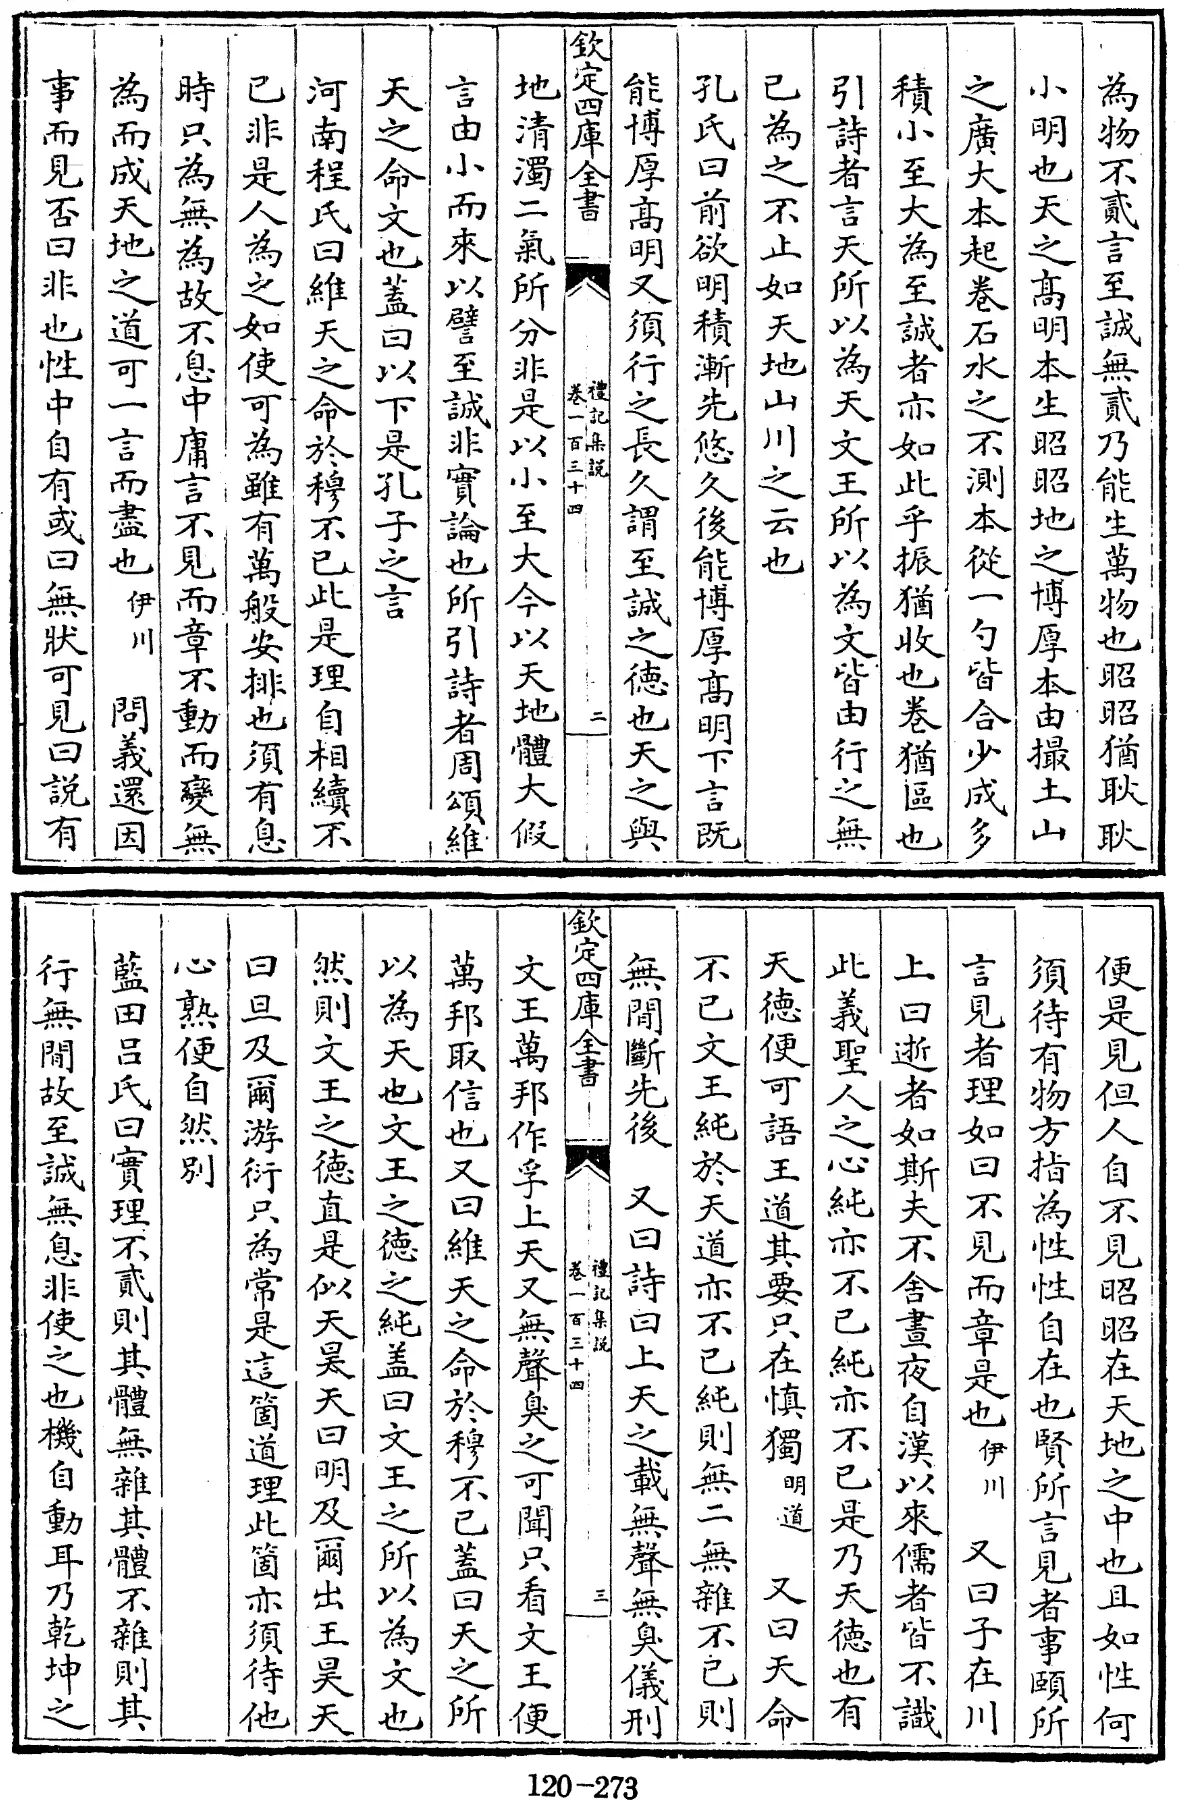 為物不貳言至誠無貳乃能生萬物也昭昭猶耿耿
小明也天之髙明本生昭昭地之博厚本由撮土山
之廣大本起卷石水之不測本從一勺皆合少成多
積小至大為至誠者亦如此乎振猶收也卷猶區也
引詩者言天所以為天文王所以為文皆由行之無
已為之不止如天地山川之云也
孔氏曰前欲明積漸先悠久後能博厚髙明下言既
能博厚髙明又須行之長久謂至誠之徳也天之與
欽定四庫全書
禮記集説
卷一百三十四
二
地清濁二氣所分非是以小至大今以天地體大假
言由小而來以譬至誠非實論也所引詩者周頌維
天之命文也蓋曰以下是孔子之言
河南程氏曰維天之命於穆不已此是理自相續不
已非是人為之如使可為雖有萬般安排也須有息
時只為無為故不息中庸言不見而章不動而變無
為而成天地之道可一言而盡也 伊川 問義還因
事而見否曰非也性中自有或曰無狀可見曰説有
便是見但人自不見昭昭在天地之中也且如性何
須待有物方指為性性自在也賢所言見者事頤所
言見者理如曰不見而章是也 伊川 又曰子在川
上曰逝者如斯夫不舍晝夜自漢以來儒者皆不識
此義聖人之心純亦不已純亦不已是乃天徳也有
天徳便可語王道其要只在慎獨 明道 又曰天命
不已文王純於天道亦不已純則無二無雜不已則
無間斷先後 又曰詩曰上天之載無聲無臭儀刑
欽定四庫全書
禮記集説
卷一百三十四
三
文王萬邦作孚上天又無聲臭之可聞只看文王便
萬邦取信也又曰維天之命於穆不已蓋曰天之所
以為天也文王之徳之純盖曰文王之所以為文也
然則文王之徳直是似天昊天曰明及爾出王昊天
曰旦及爾游衍只為常是這箇道理此箇亦須待他
心熟便自然別
藍田呂氏曰實理不貳則其體無雜其體不雜則其
行無間故至誠無息非使之也機自動耳乃乾坤之
120-273